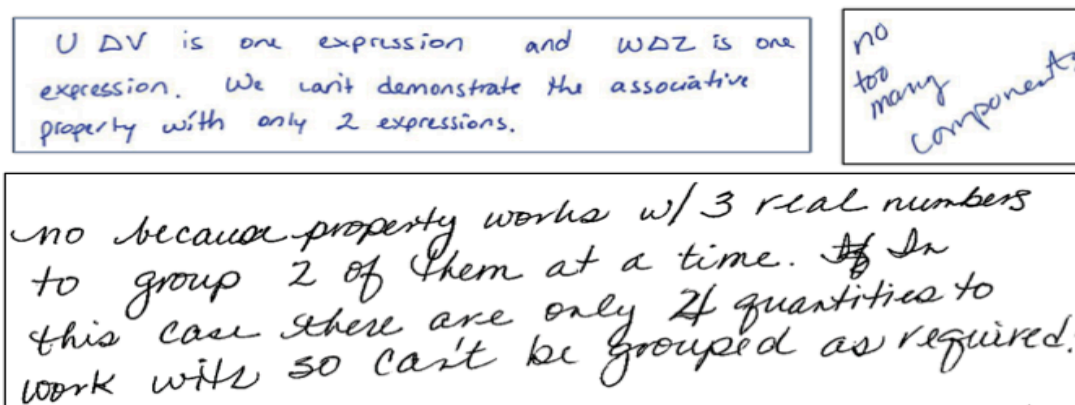 U ΔV is one expression and WΔZ is one
expression. We can't demonstrate the associative
property with only 2 expressions.
no
too
many
components
no because property works w/ 3 real numbers
to group 2 of them at a time. In
this case there are only quantities to
work with so can't be grouped as required.